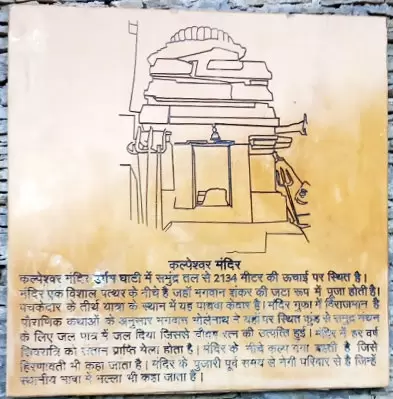 कल्पेश्वर मंदिर
कल्पेश्वर मंदिर उर्गम घाटी में समुद्र तल से 2134 मीटर की ऊचाई पर स्थित है।
मंदिर एक विशाल पत्थर के नीचे है जहाँ भगवान शंकर की जटा रूप में पूजा होती है।
पंचकेदार के तीर्थ यात्रा के स्थान में यह पांचवा केदार है। मंदिर गुफा में विराजमान है
पौराणिक कथाओं के अनुसार भगवान भोलेनाथ ने यहाँ पर स्थित कुंड से समुद्र मंथन
के लिए जल पात्र में जल दिया जिससे चौदह रत्न की उत्पत्ति हुई। मंदिर में हर वर्ष
शिवरात्रि को संतान प्राप्ति मेला होता है। मंदिर के नीचे कल्प गंगा बहती है जिसे
हिरणावती भी कहा जाता है। मंदिर के पुजारी पूर्व समय से नेगी परिवार से है जिन्हें
स्थानीय भाषा में मल्ला भी कहा जाता है।